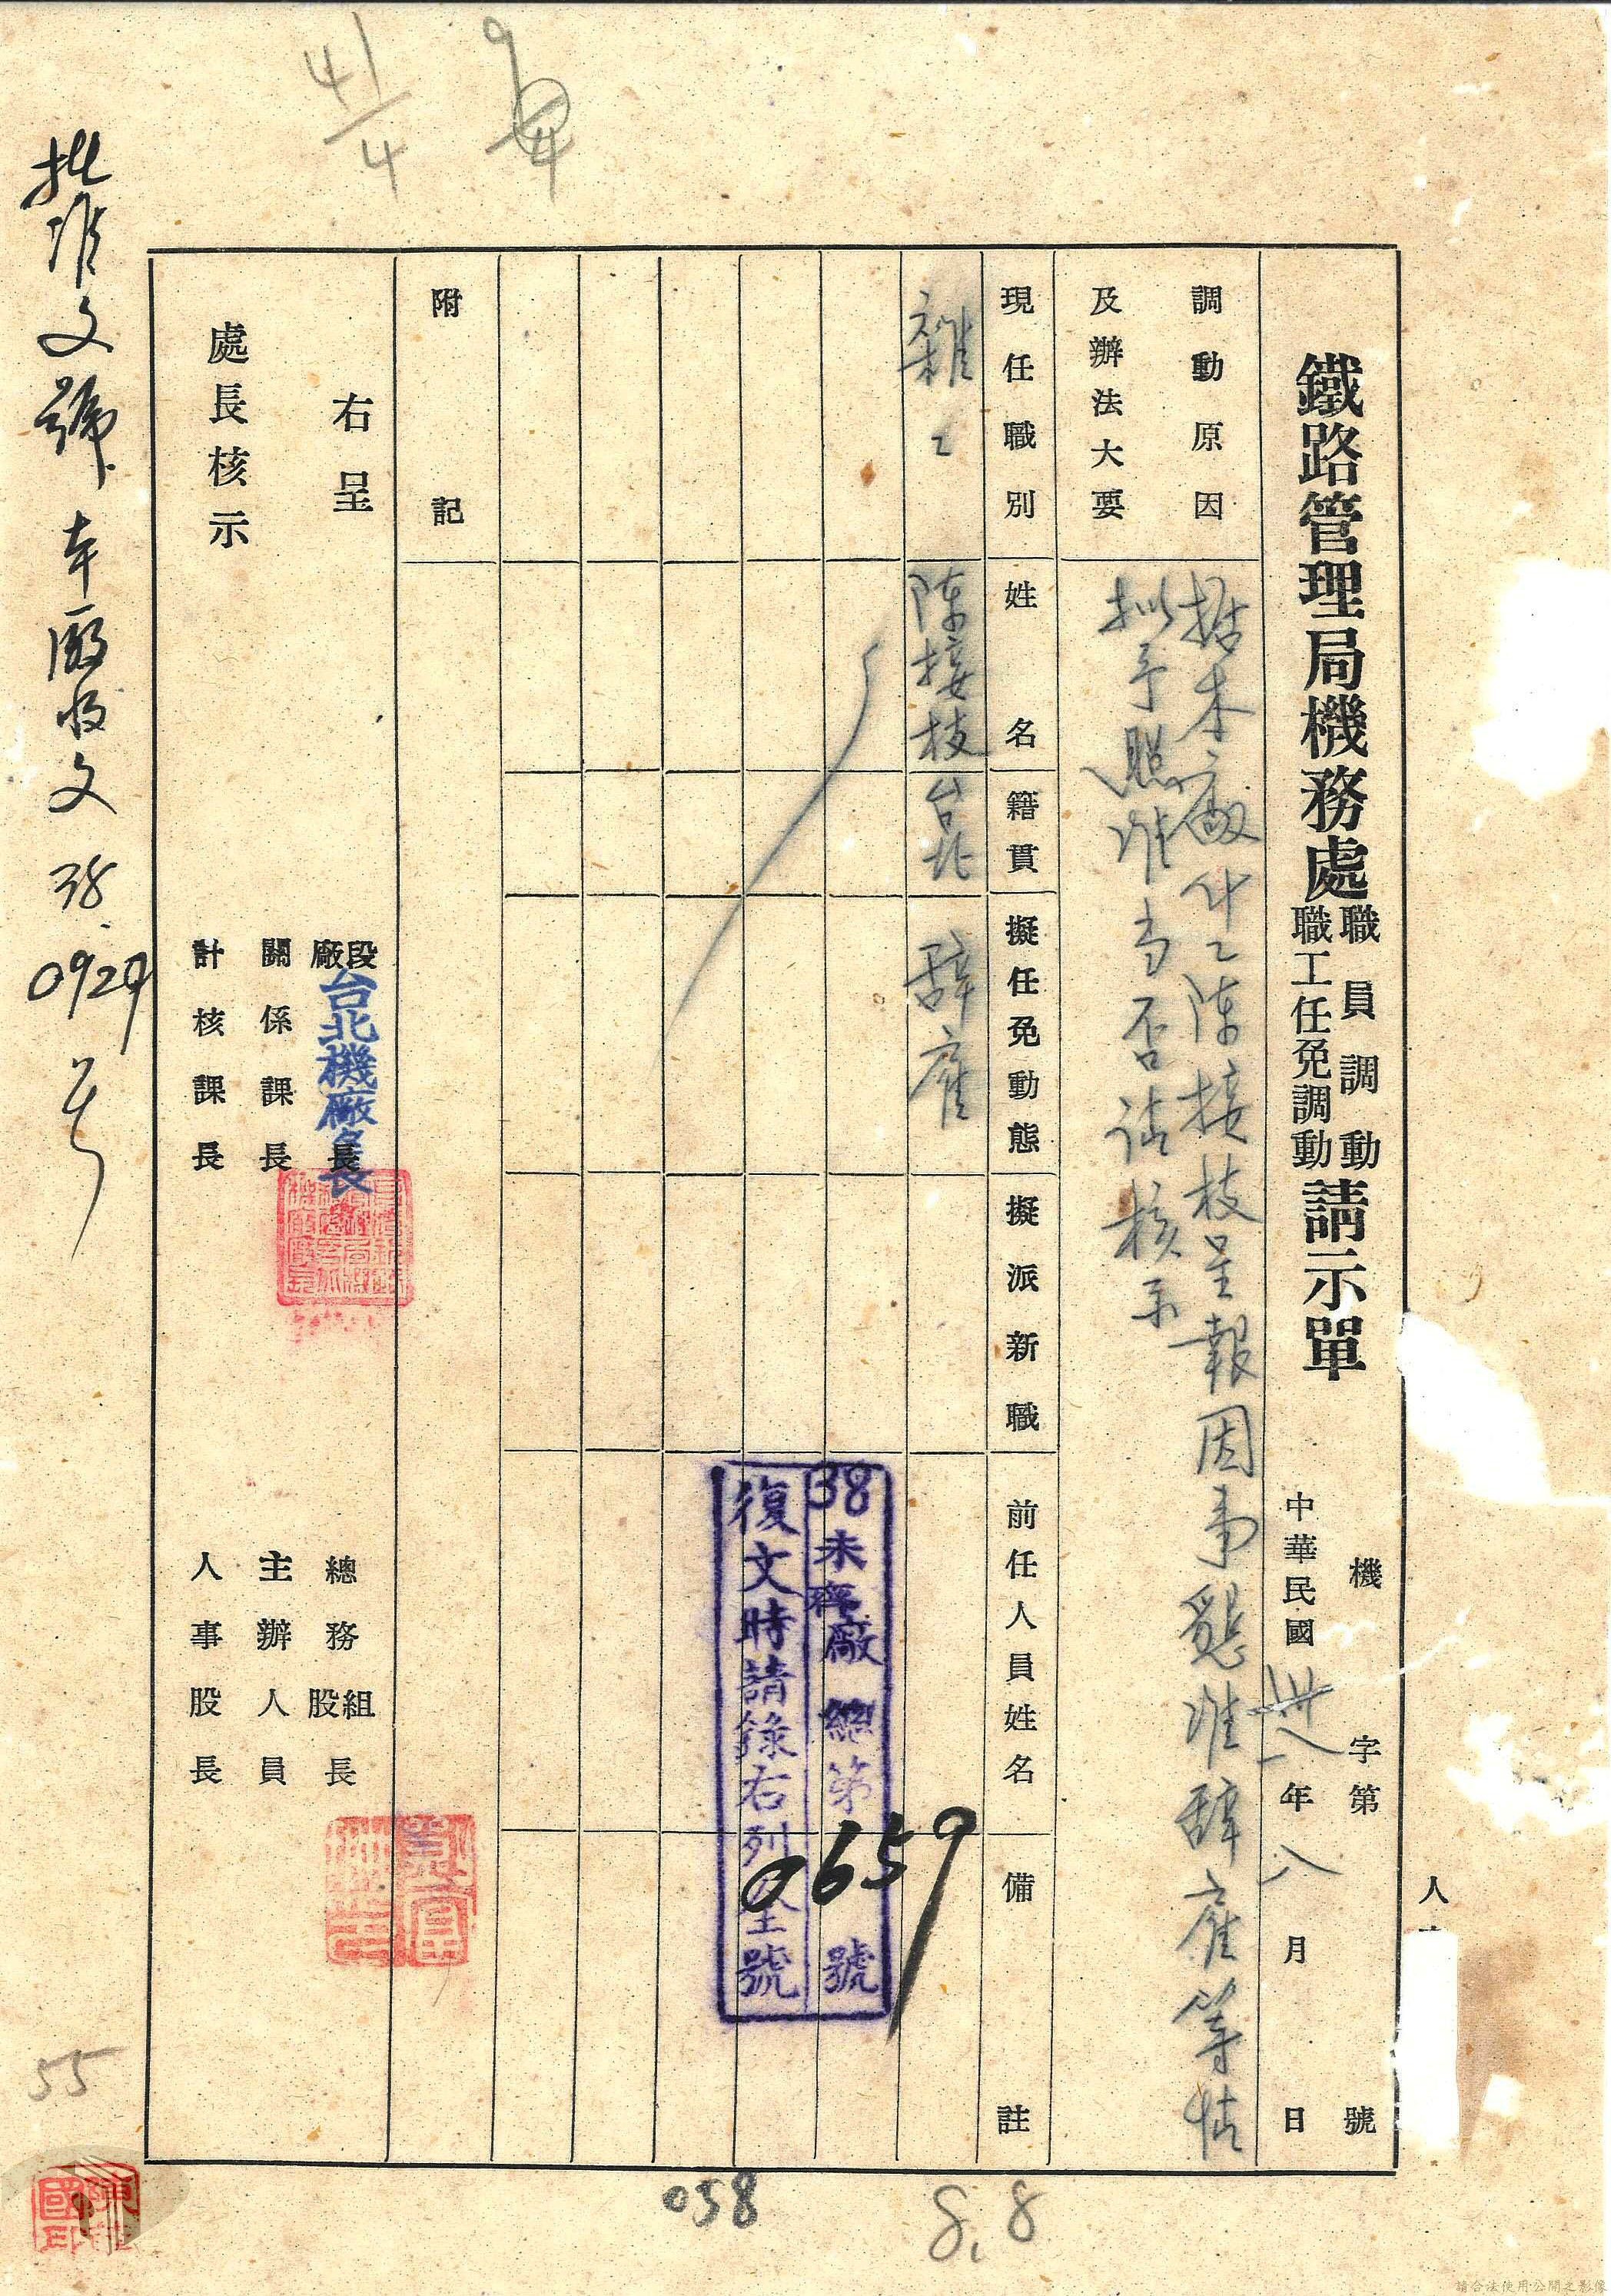 鐵路管理局機務處職員調動職工任免調動請示單
機字第號
中華民國卅八年八月日
人
調動原因
及辦法大要
據本廠什工陳接枝呈報因事懇准辭雇等情
擬予照准當否請核示
現任職別
姓名
籍貫
擬任免動態
擬派新職
前任人員姓名
備註
雜工
陳接枝
台北
辭雇
38未齊廠總第0659號
復文時請錄右列全號
附記
右呈
處長核示
段廠長
台北機廠長
關係課長
計核課長
總務組股長
主辦人員
人事股長
批准文號 本廠收文 38.0929號
41/4
9/4
058
8,8
55
請合法使用公開之影像